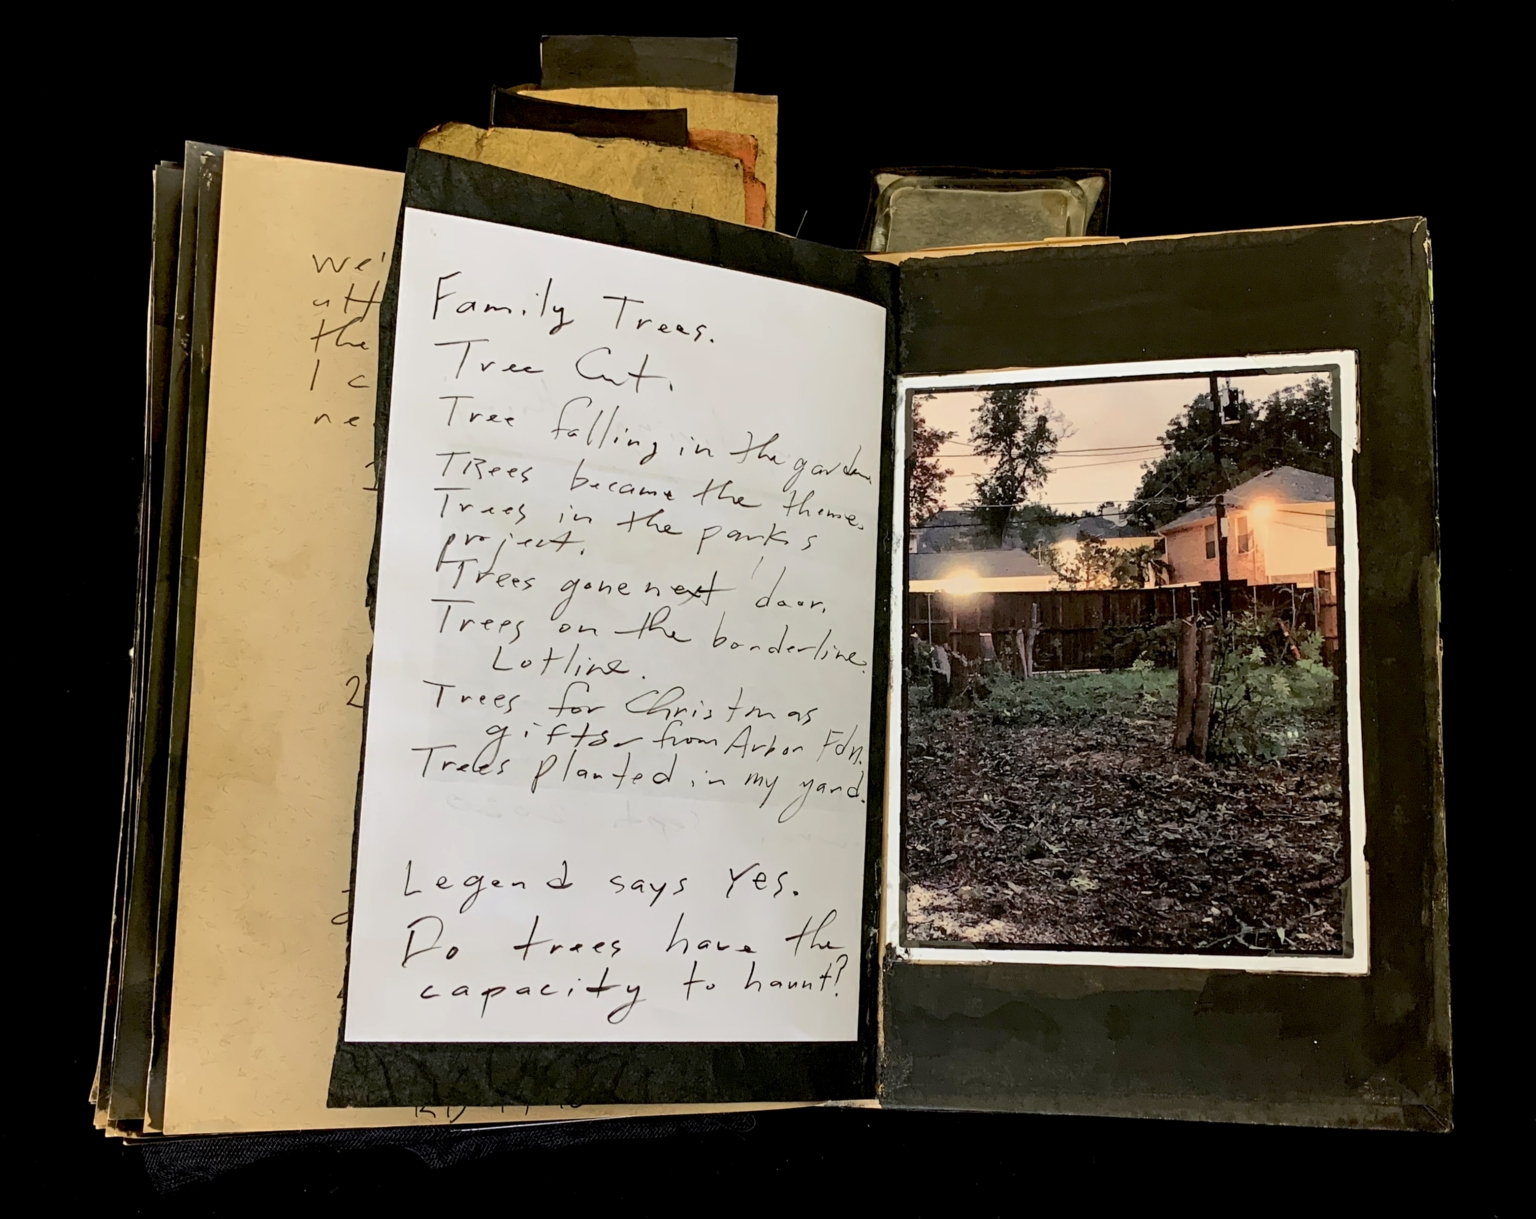 we'
utt
the
I c
ne
2
Family Trees.
Tree Cut.
Tree falling in the garden
TREES became the theme.
Trees in the parks
project.
Trees gone next door.
Trees on the borderline.
Lotline.
Trees for Christmas
gifts - from Arbor Fdn.
Trees planted in my yard.
Legend says Yes.
Do trees have the
capacity to haunt?